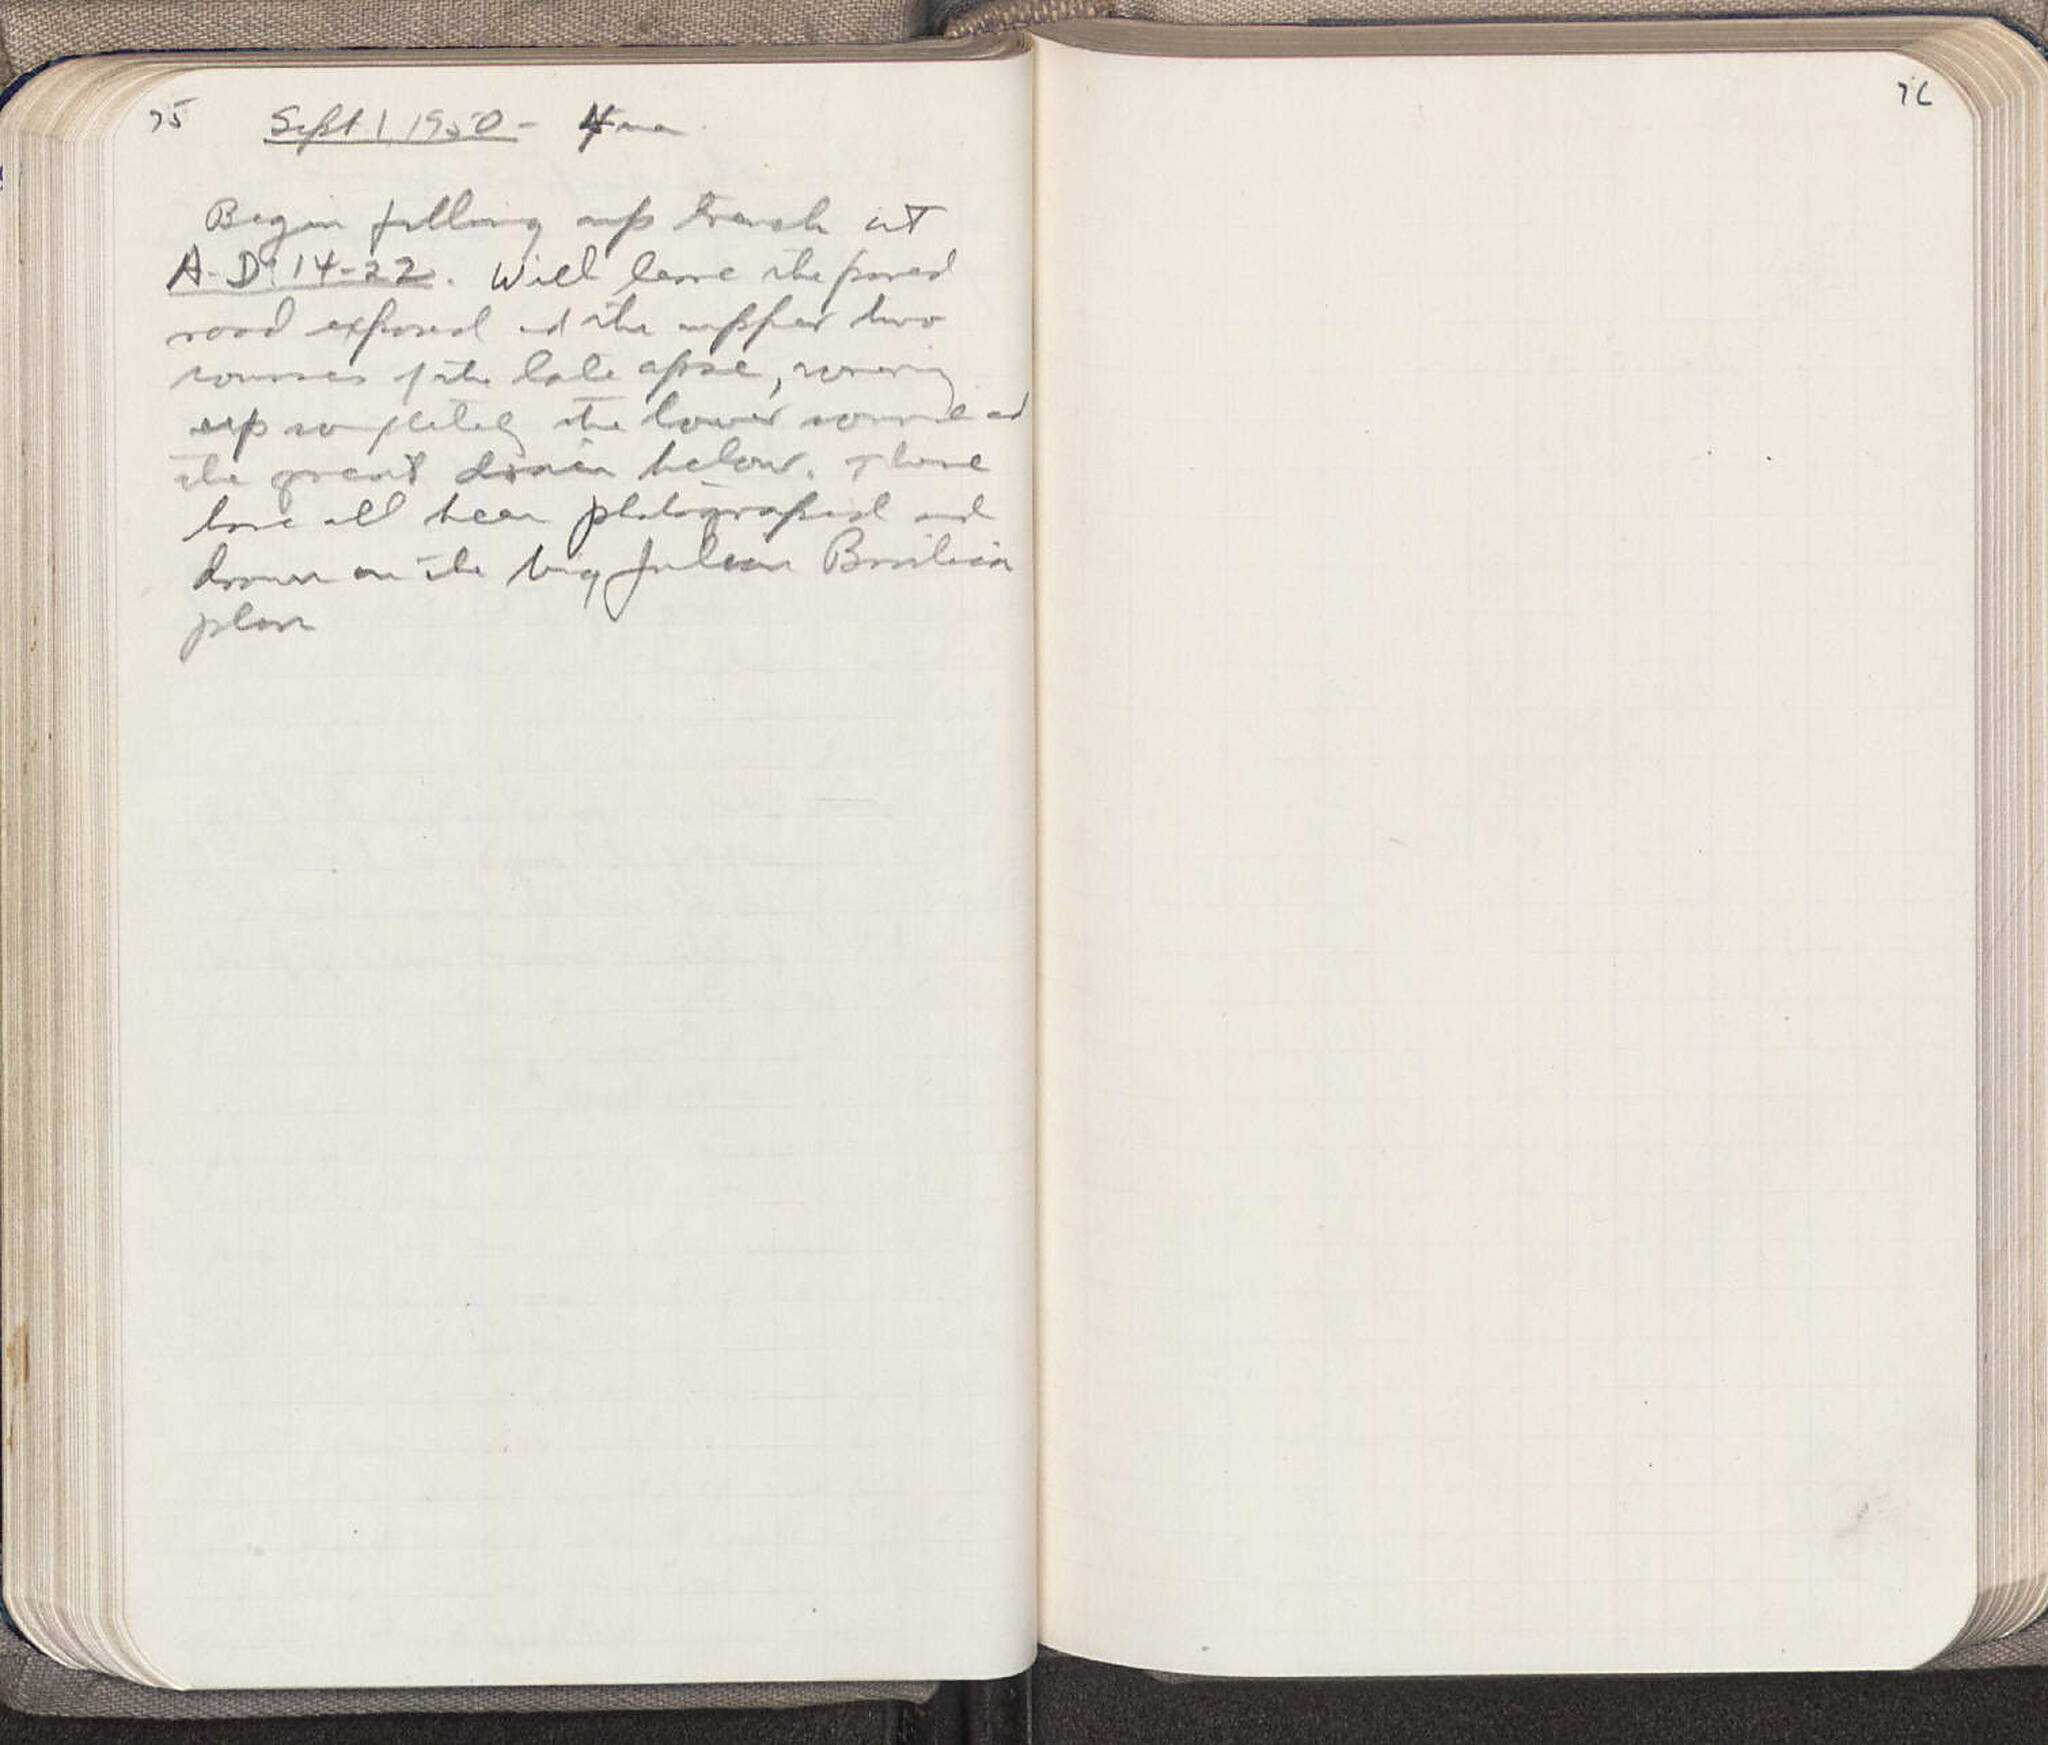 75 Sept. 1 1950 - 4 men
Begin filling up trench at
A-D: 14-22. Will leave the paved
road exposed and the upper two
courses of the late apse, covering
up completely the lower course and
the great drain below. These
have all been photographed and
drawn on the big Julian Basilica
plan
76